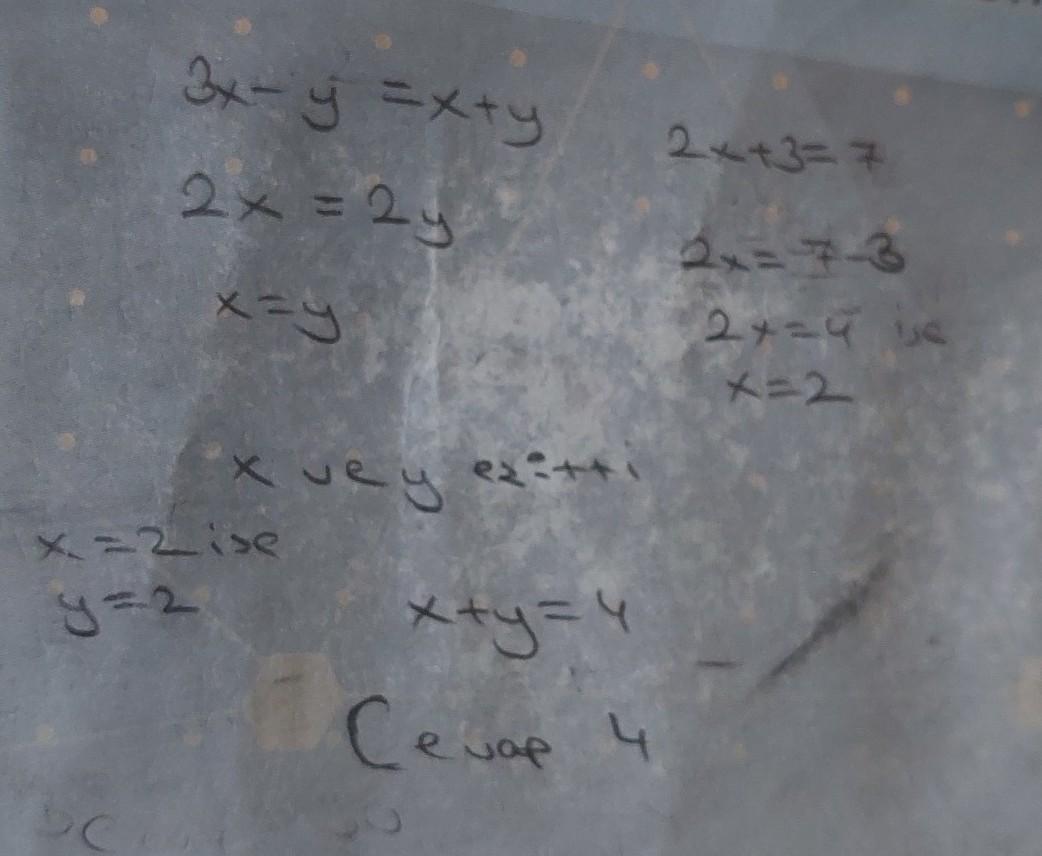 3x - y = x + y
2x = 2y
x = y
2x + 3 = 7
2x = 7 - 3
2x = 4 ise
x = 2
x ve y eşitti
x = 2 ise
y = 2
x + y = 4
Cevap 4